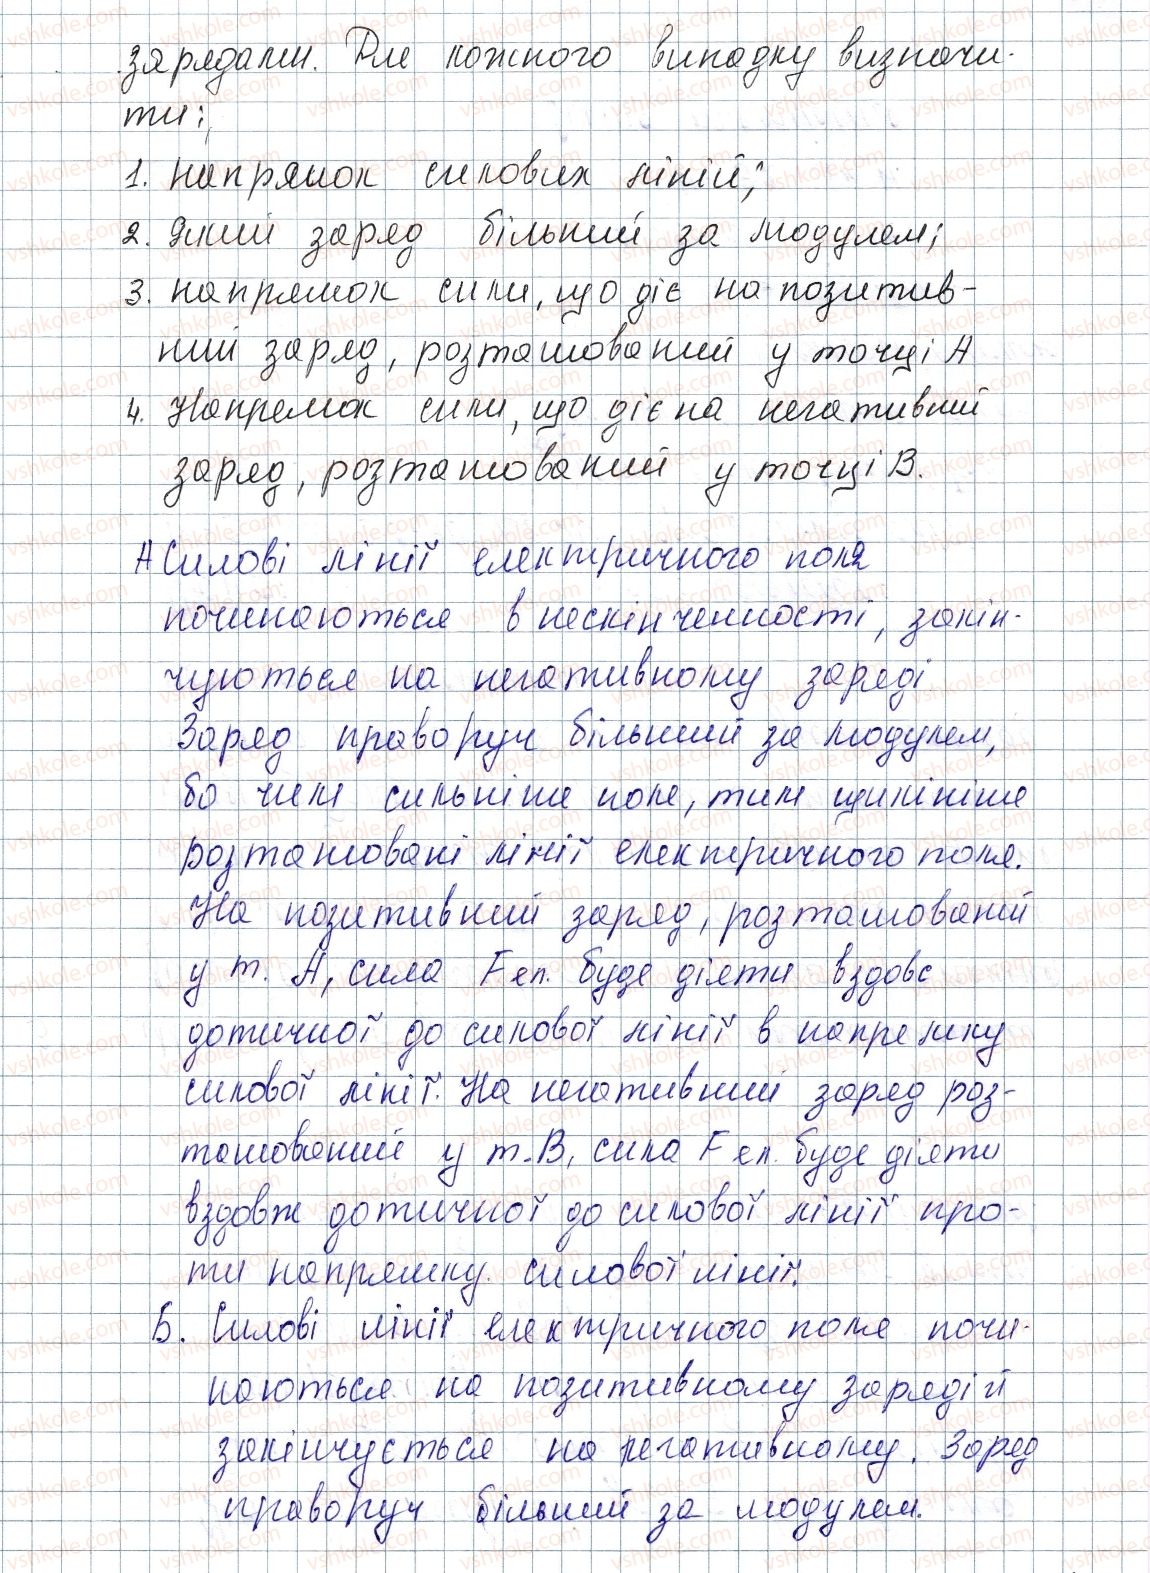 зарядами. Для кожного випадку визначи-
ти:
1. напрямок силових ліній;
2. Який заряд більший за модулем;
3. напрямок сили, що діє на позитив-
ний заряд, розташований у точці А
4. Напрямок сили, що діє на негативний
заряд, розташований у точці В.
А Силові лінії електричного поля
починаються в нескінченності, закін-
чуються на негативному заряді
Заряд праворуч більший за модулем,
бо чим сильніше поле, тим щільніше
розташовані лінії електричного поля.
На позитивний заряд, розташований
у т. А, сила Fел. буде діяти вздовж
дотичної до силової лінії в напрямку
силової лінії. На негативний заряд роз-
ташований у т. В, сила Fел. буде діяти
вздовж дотичної до силової лінії про-
ти напрямку силової лінії.
Б. Силові лінії електричного поля почи-
наються на позитивному заряді й
закінчується на негативному. Заряд
праворуч більший за модулем.